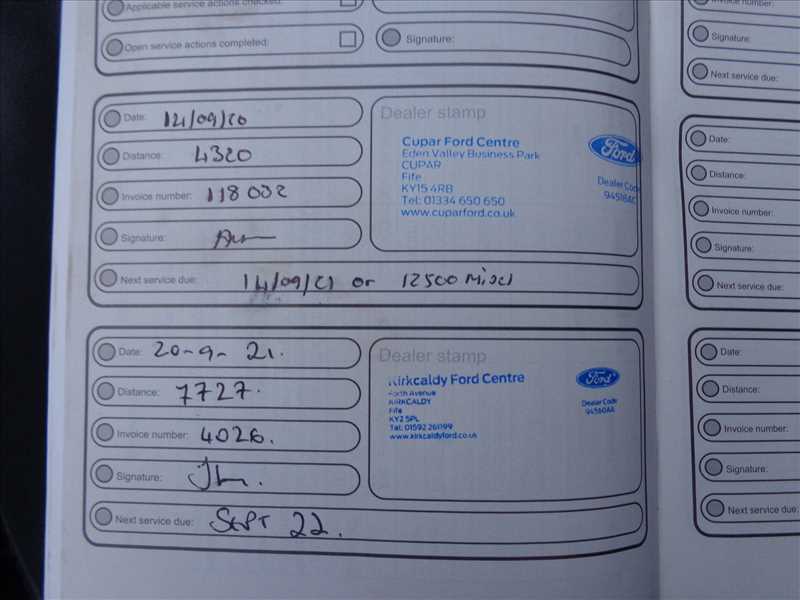 Applicable service actions checked:
Open service actions completed:
Signature:
Date: 14/09/20
Distance: 4320
Invoice number: 118002
Signature:
Next service due: 14/09/21 or 12500 Miles
Dealer stamp
Cupar Ford Centre
Eden Valley Business Park
CUPAR
Fife
KY15 4RB
Tel: 01334 650 650
www.cuparford.co.uk
Ford
Dealer Code
94518AC
Date: 20-9-21.
Distance: 7727.
Invoice number: 4026.
Signature:
Next service due: SEPT 22.
Dealer stamp
Kirkcaldy Ford Centre
Forth Avenue
KIRKCALDY
Fife
KY2 5PL
Tel: 01592 261199
www.kirkcaldyford.co.uk
Ford
Dealer Code
94560AA
Invoice number:
Signature:
Next service due:
Date:
Distance:
Invoice number:
Signature:
Next service due:
Date:
Distance:
Invoice number:
Signature:
Next service due: